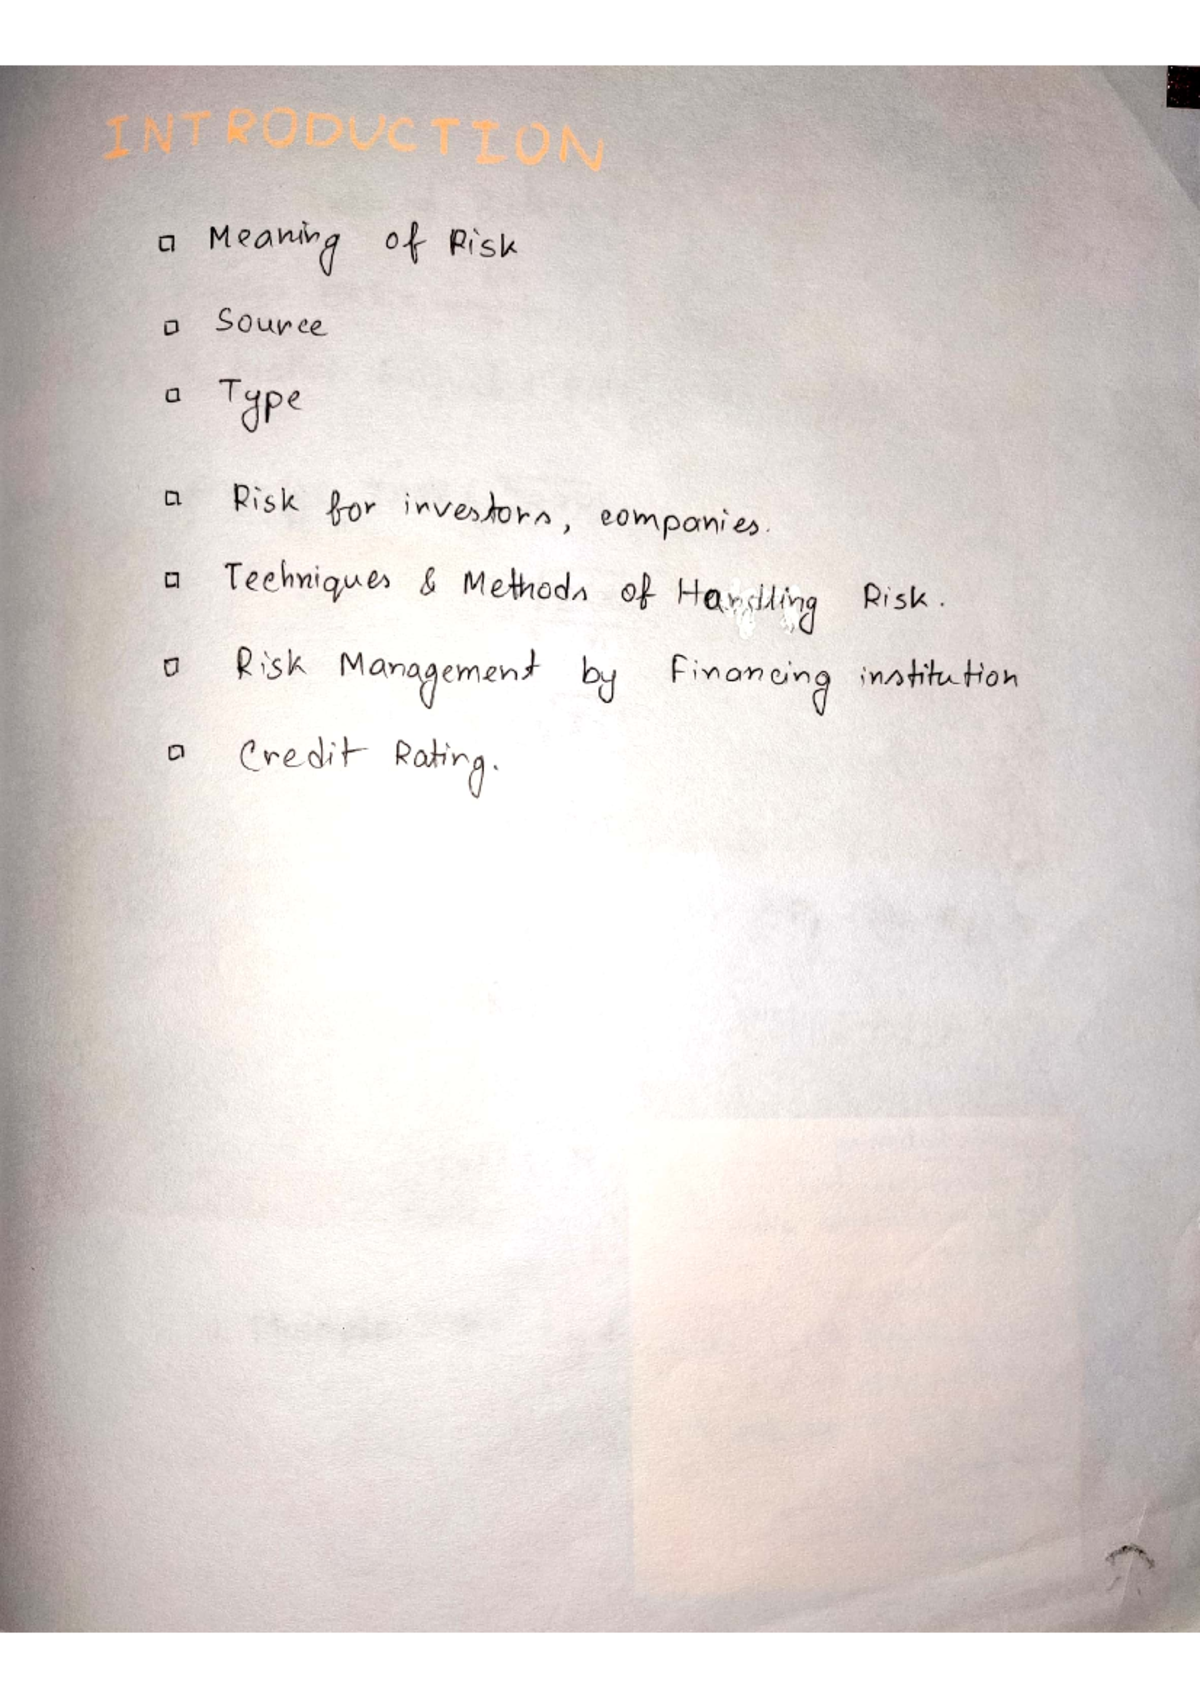 INTRODUCTION
Meaning of Risk
Source
Type
Risk for investors, companies.
Techniques & Methods of Handling Risk.
Risk Management by Financing institution
Credit Rating.